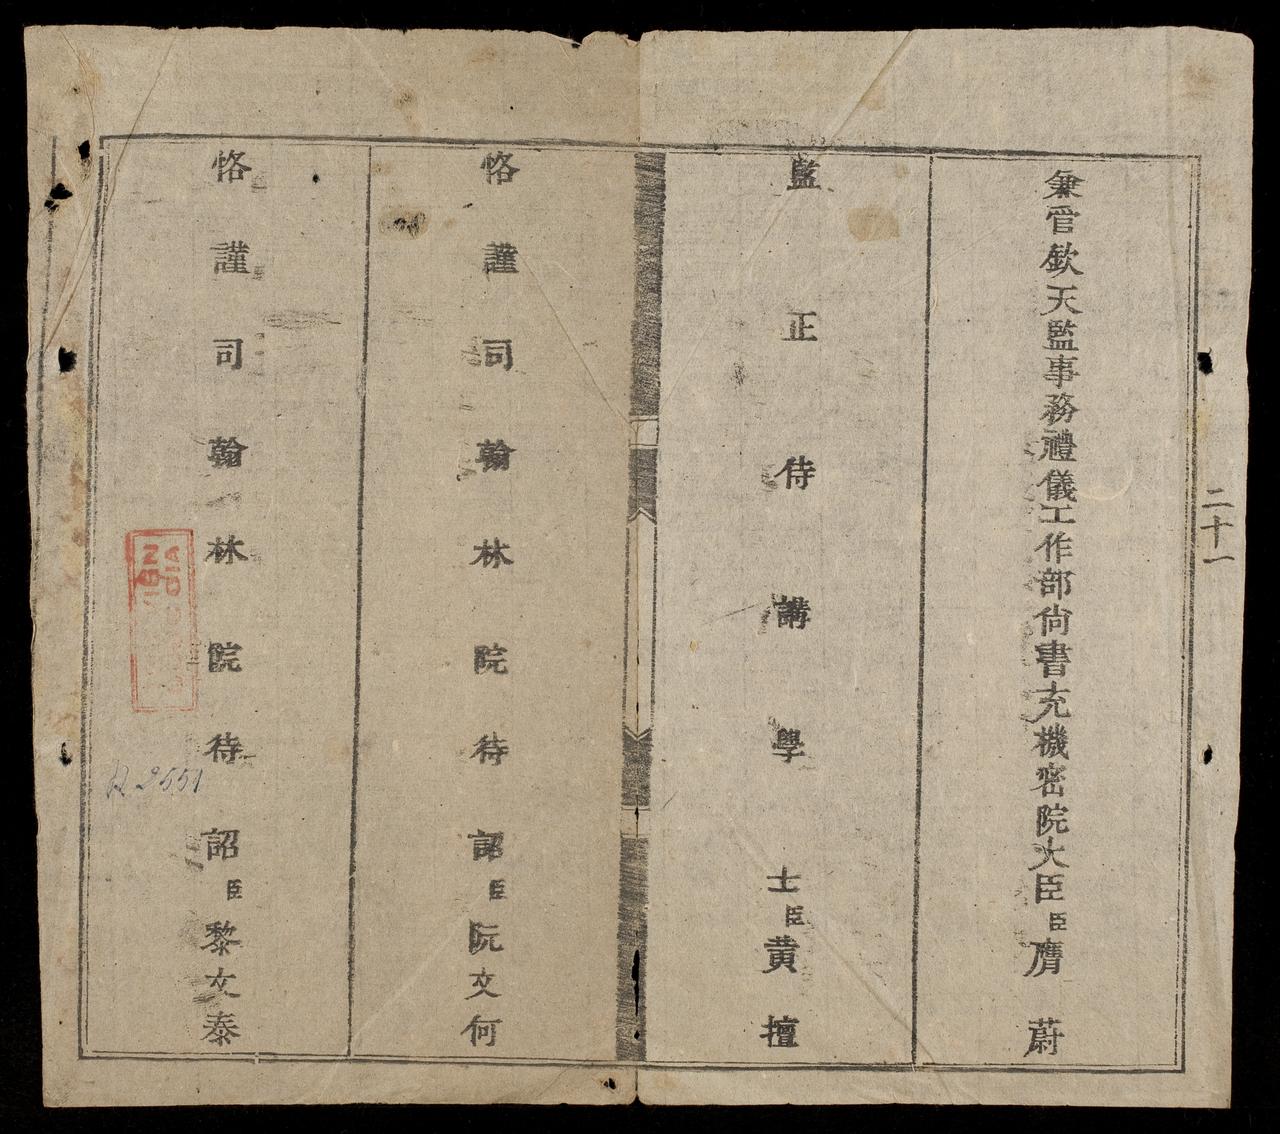 二十一
兼管欽天監事務禮儀工作部尙書充機密院大臣臣膺蔚
監正侍講學士臣黃擅
恪謹司翰林院待詔臣阮文何
恪謹司翰林院待詔臣黎文泰
A 2551